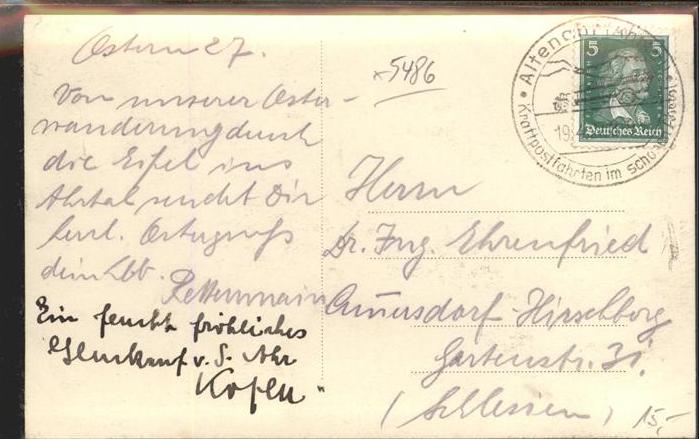 Ostern 27.
Von unserer Oster-
wanderung durch
die Eifel ins
Ahrtal sendet Dir
herzl. Ostergruß
dein
Ein feucht fröhliches
Glückauf v. d. Ahr
x5486
Herrn
Dr. Ing Ehrenfried
Cunersdorf-Hirschberg
Gartenstr. 31.
(Schlesien)
15,-
Altenahr
Kraftpostfahrten im schönen
5 5
Deutsches Reich